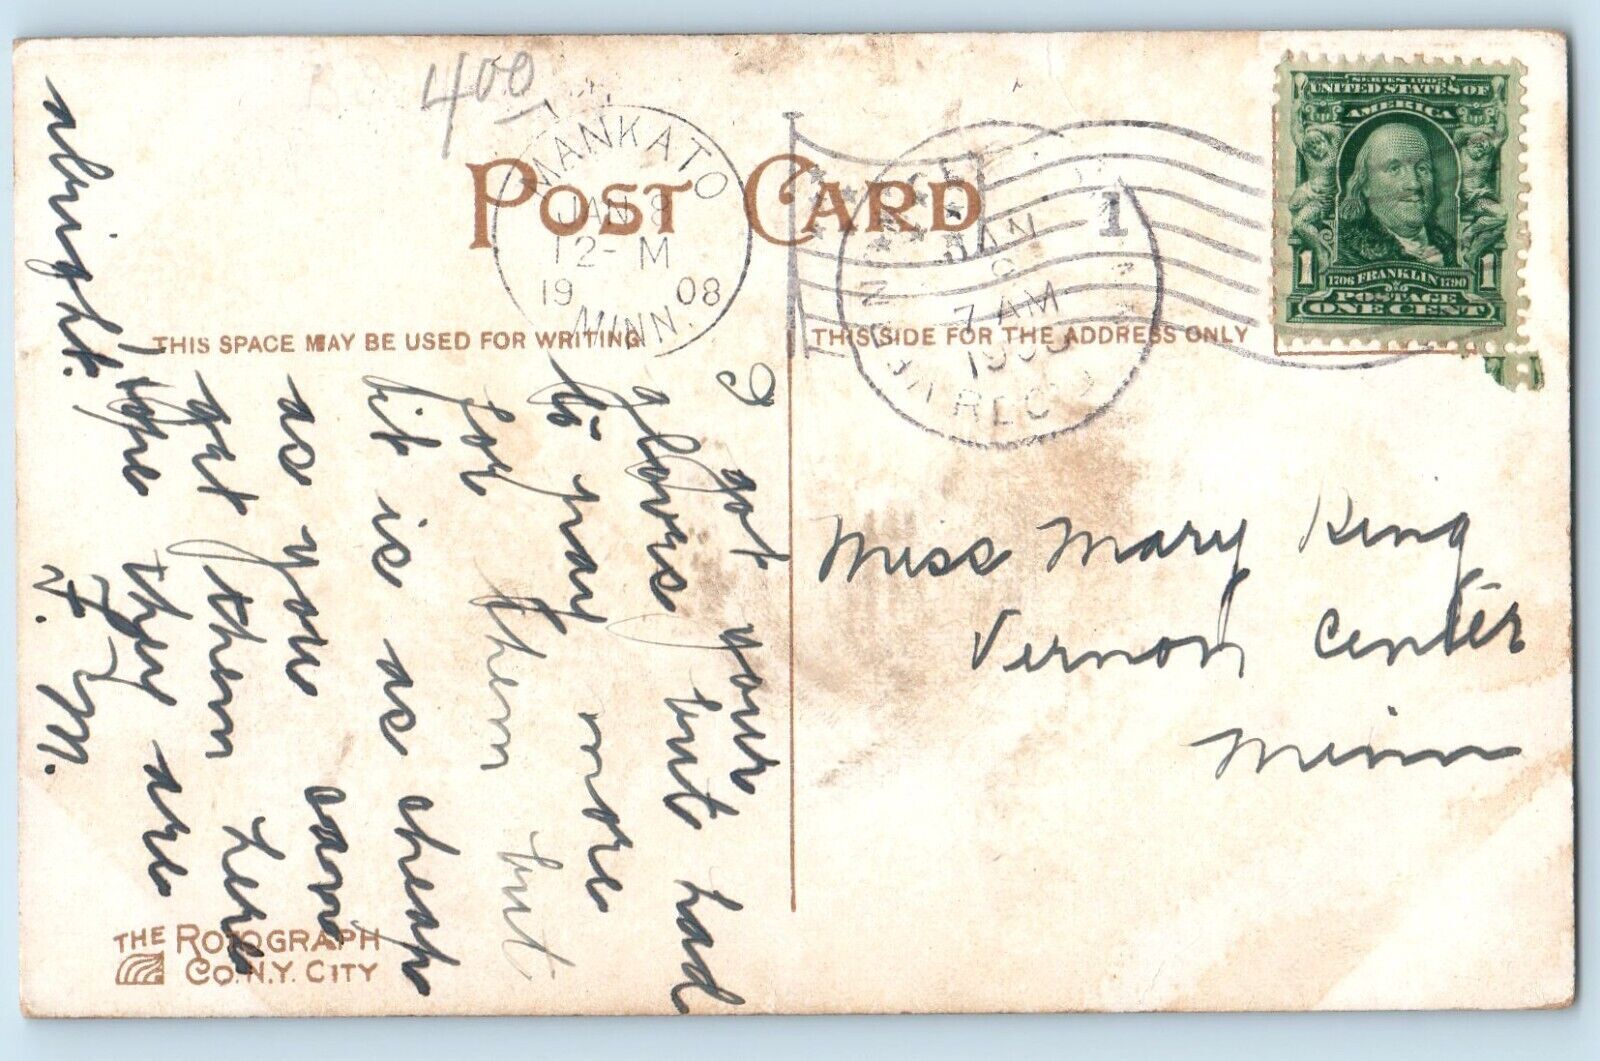 400
POST CARD
MANKATO
JAN 8
12-M
19 08
MINN.
1
JAN
7 AM
REC'D
SERIES 1902
UNITED STATES OF
AMERICA
1706 FRANKLIN 1790
POSTAGE
1 1
ONE CENT
THIS SPACE MAY BE USED FOR WRITING
THIS SIDE FOR THE ADDRESS ONLY
I got your
glovs but had
to pay more
for them but
it is as cheap
as you can
get them here
hope they are
alright.
F. M.
Miss Mary King
Vernon Center
Minn
THE ROTOGRAPH
CO. N.Y. CITY